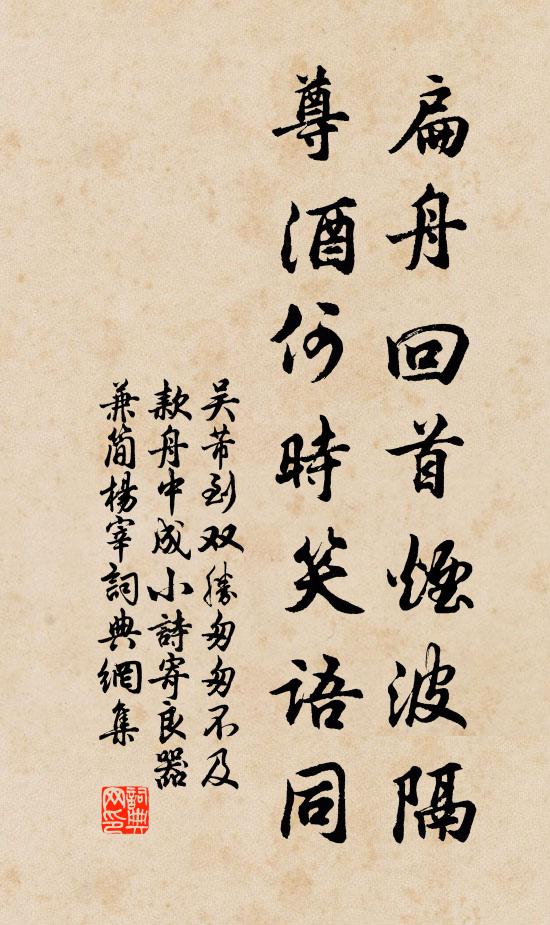 扁舟回首煙波隔
尊酒何時笑語同
吴芾到双勝匆匆不及
款舟中成小詩寄良器
兼简楊宰詞典網集
詞典网印